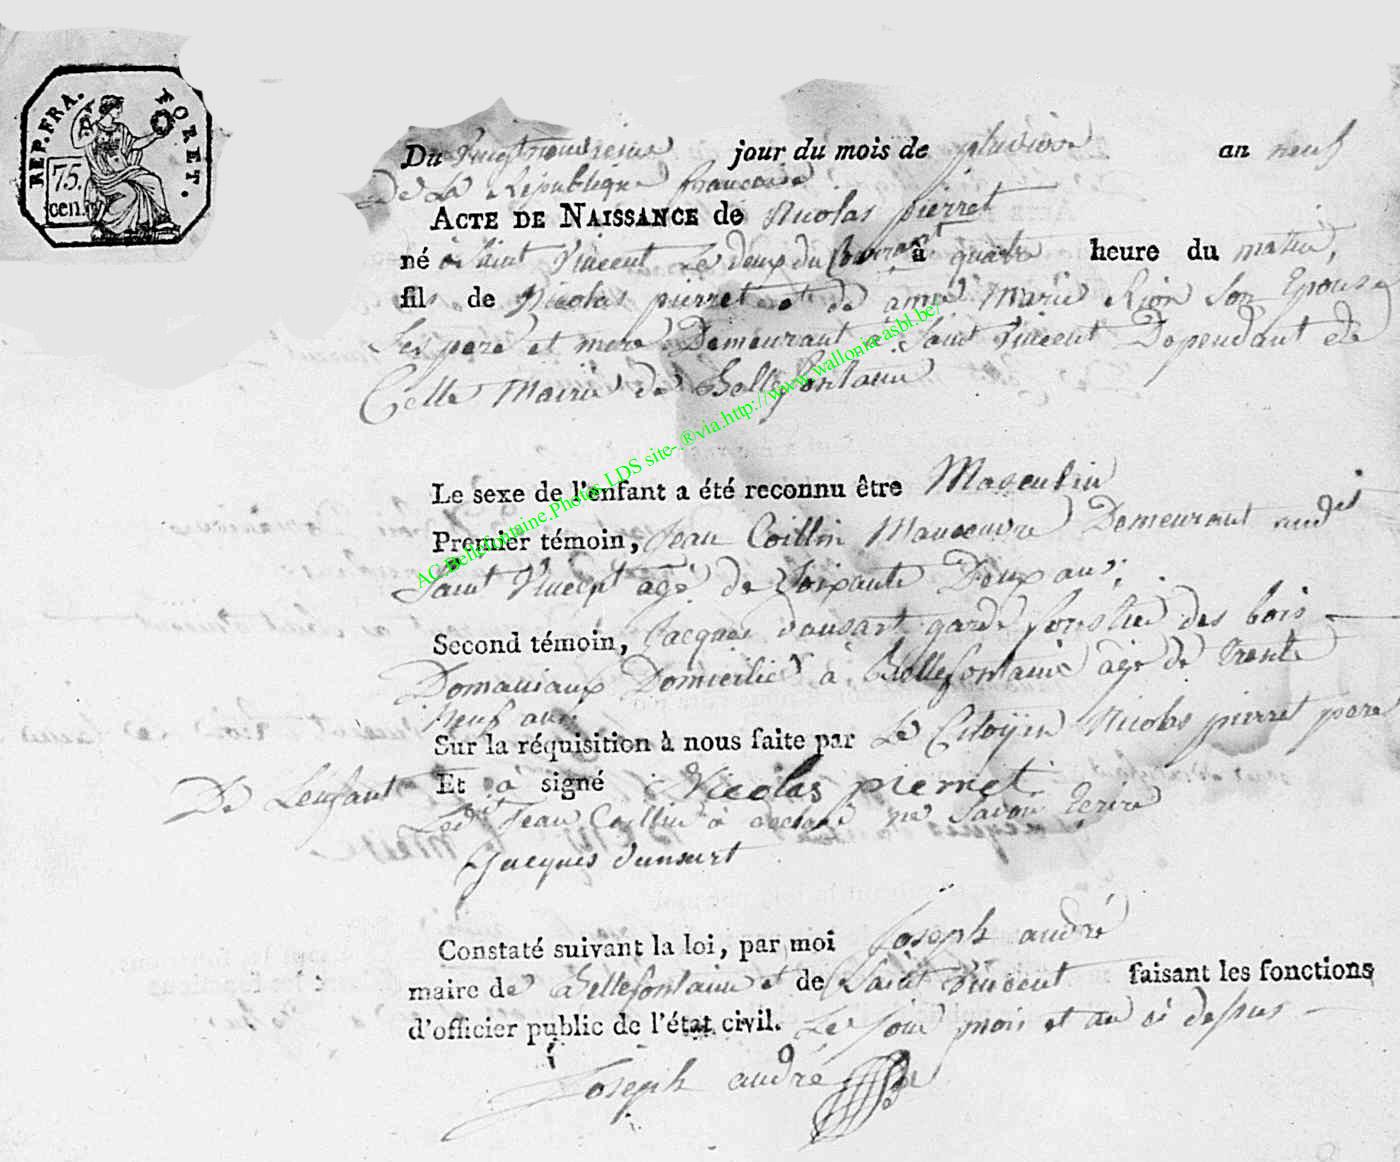 REP. FRA. FORET.
75.
cen.
Du Vingt neuvieme jour du mois de pluviose an neuf
De La République francoise
ACTE DE NAISSANCE de Nicolas pierret
né à Saint Vincent Le deux du Courant à quatre heure du matin,
fils de Nicolas pierret et de anne Marie Rion Son Epouse
Ses pere et mere Demeurant a Saint Vincent Dependant de
Cette Mairie de Bellefontaine
Le sexe de l'enfant a été reconnu être Masculin
Premier témoin, Jean Collin Manoeuvre Demeurant audit
Saint Vincent agé de Soixante Deux ans;
Second témoin, Jacques dansart garde forestier des bois
Domaniaux Domicilié à Bellefontaine âgé de Trente
Neuf ans
Sur la réquisition à nous faite par Le Citoÿen Nicolas pierret pere
De Lenfant Et à signé Nicolas pierret
Ledit Jean Collin à declaré ne Savoir Ecrire
Jacques dansart
Constaté suivant la loi, par moi Joseph andré
maire de Bellefontaine et de Saint Vincent faisant les fonctions
d'officier public de l'état civil. Les jour mois et an ci dessus
Joseph andré
AC.Bellefontaine.Photos LDS site-.®via.http://www.wallonia-asbl.be/